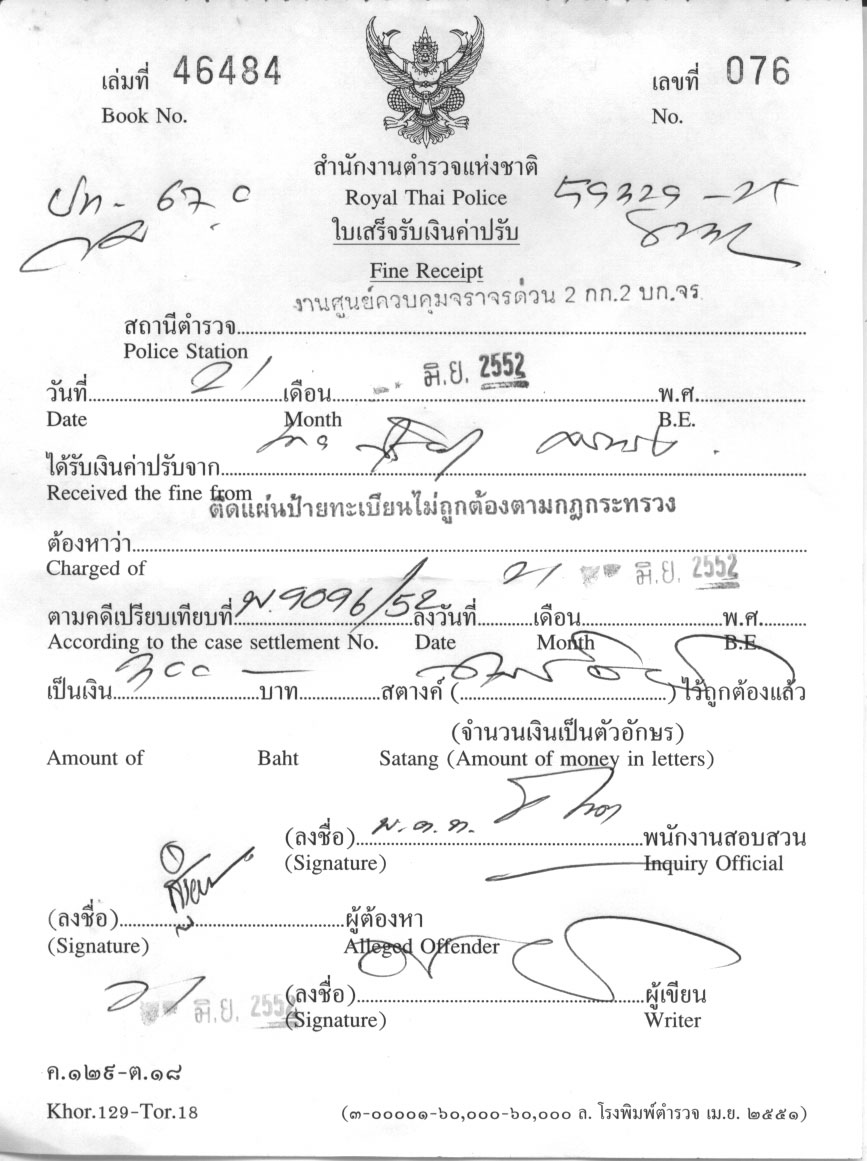 เล่มที่ 46484 เลขที่ 076
Book No. No.
สำนักงานตำรวจแห่งชาติ
Royal Thai Police
ใบเสร็จรับเงินค่าปรับ
Fine Receipt
59329
งานศูนย์ควบคุมจราจรด่วน 2 กก.2 บก.จร.
สถานีตำรวจ
Police Station
วันที่ 21 เดือน มิ.ย. 2552 พ.ศ.
Date Month B.E.
ได้รับเงินค่าปรับจาก
Received the fine from
ติดแผ่นป้ายทะเบียนไม่ถูกต้องตามกฎกระทรวง
ต้องหาว่า
Charged of
ตามคดีเปรียบเทียบที่ พ.9096/52 ลงวันที่ 21 เดือน มิ.ย. 2552 พ.ศ.
According to the case settlement No. Date Month B.E.
เป็นเงิน บาท สตางค์ ( ) ไว้ถูกต้องแล้ว
(จำนวนเงินเป็นตัวอักษร)
Amount of Baht Satang (Amount of money in letters)
(ลงชื่อ) พ.ต.ท. พนักงานสอบสวน
(Signature) Inquiry Official
(ลงชื่อ) ผู้ต้องหา
(Signature) Alleged Offender
มิ.ย. 2552 (ลงชื่อ) ผู้เขียน
(Signature) Writer
ค.๑๒๙-ต.๑๘
Khor.129-Tor.18 (๓-๐๐๐๐๑-๖๐,๐๐๐-๖๐,๐๐๐ ล. โรงพิมพ์ตำรวจ เม.ย. ๒๕๕๑)